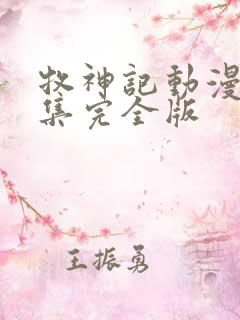 牧神記動漫
集完全版
王振勇